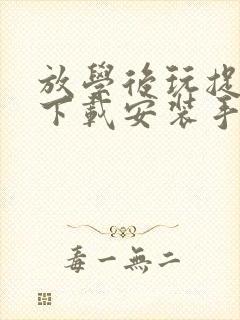 放學後玩捉
下載安裝手
毒一無二